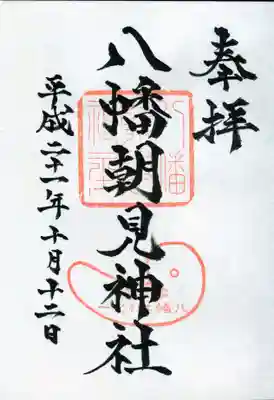 奉拝
八幡朝見神社
平成二十一年十月十二日